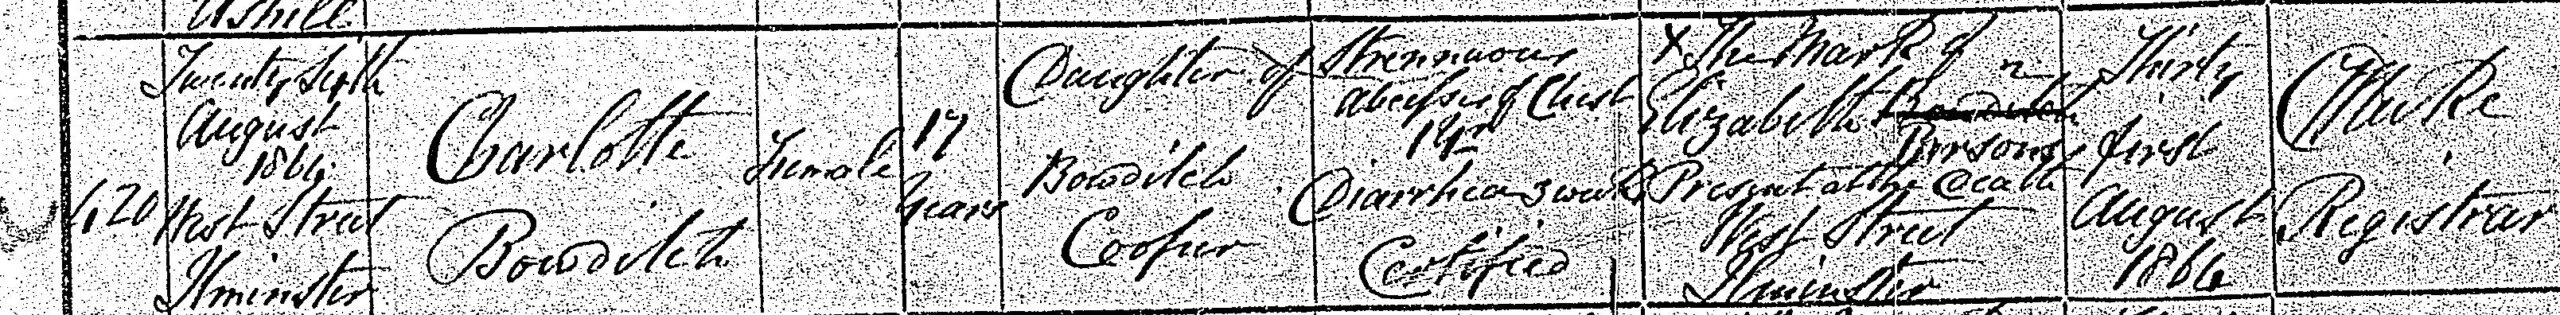 Ashill
420
Twenty Sixth
August
1866
West Street
Ilminster
Charlotte
Bowditch
Female
17
Years
Daughter of
Bowditch
Cooper
Strennuous
Abcessue of Chest
Diarrhea 3 weeks
Certified
X The Mark of
Elizabeth Bowditch
Parsons
Present at the Death
West Street
Ilminster
Thirty
first
August
1866
Registrar